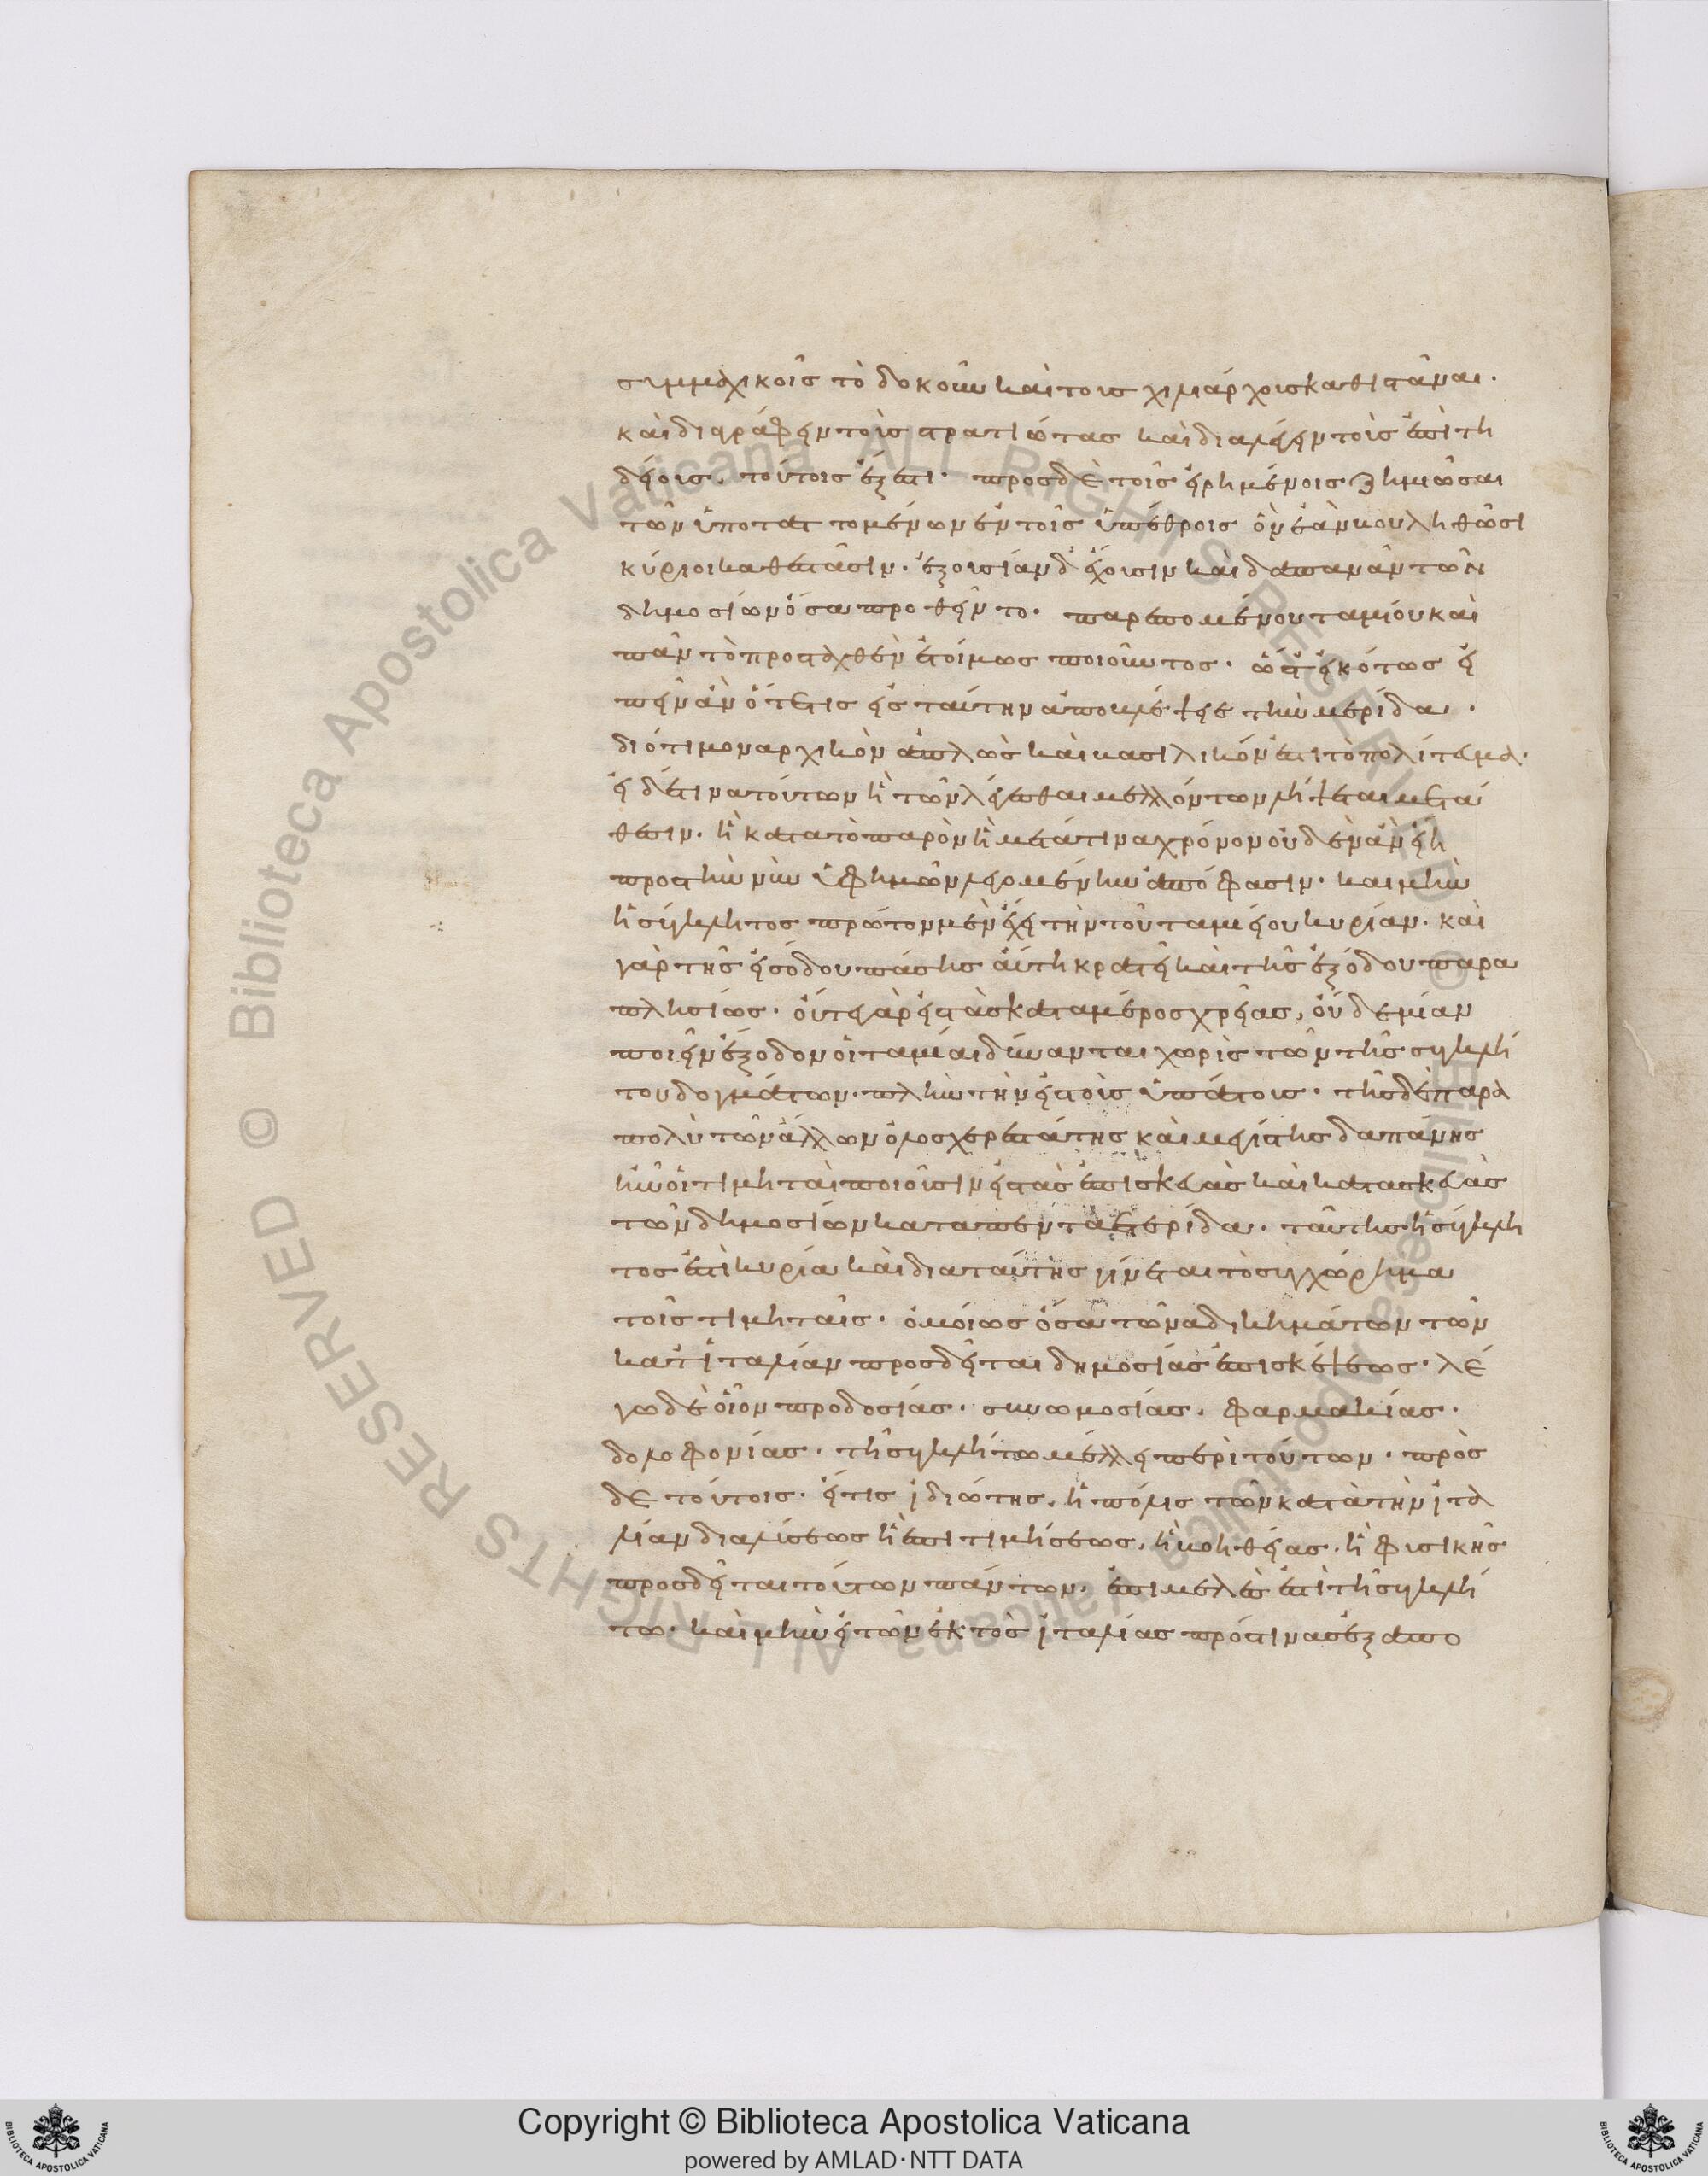 συμμαχικοῖς τὸ δοκοῦν καὶ τοὺς χιλιάρχους καθιστάναι·
καὶ διαγράφειν τοὺς στρατιώτας καὶ διαλέγειν τοὺς ἐπιτη
δείους, τούτοις ἔξεστι· πρὸς δὲ τοῖς εἰρημένοις ζημιῶσαι
τῶν ὑποταττομένων ἐν τοῖς ὑπαίθροις ὃν ἐὰν βουληθῶσι
κύριοι καθεστᾶσιν· ἐξουσίαν δ' ἔχουσιν καὶ δαπανᾶν τῶν
δημοσίων ὅσα προθεῖντο· παρεπομένου ταμίου καὶ
πᾶν τὸ προσταχθὲν ἑτοίμως ποιοῦντος· ὥστ' εἰκότως εἰ
πεῖν ἂν ὅτε τις εἰς ταύτην ἀποβλέψειε τὴν μερίδα·
διότι μοναρχικὸν ἁπλῶς καὶ βασιλικόν ἐστι τὸ πολίτευμα·
εἰ δέ τινα τούτων ἢ τῶν λέγεσθαι μελλόντων λήψεται μετά
θεσιν· ἢ κατὰ τὸ παρὸν ἢ μετά τινα χρόνον οὐδὲν ἂν εἴη
πρὸς τὴν νῦν ὑφ' ἡμῶν λεγομένην ἀπόφασιν· καὶ μὴν
ἡ σύγκλητος πρῶτον μὲν ἔχει τὴν τοῦ ταμιείου κυρίαν· καὶ
γὰρ τῆς εἰσόδου πάσης αὕτη κρατεῖ καὶ τῆς ἐξόδου παρα
πλησίως· οὔτε γὰρ εἰς τὰς κατὰ μέρος χρείας, οὐδεμίαν
ποιεῖν ἔξοδον οἱ ταμίαι δύνανται χωρὶς τῶν τῆς συγκλή
του δογμάτων· πλὴν τὴν εἰς τοὺς ὑπάτους· τῆς δὲ παρὰ
πολὺ τῶν ἄλλων ὁλοσχερεστάτης καὶ μεγίστης δαπάνης
ἣν οἱ τιμηταὶ ποιοῦσιν εἰς τὰς ἐπισκευὰς καὶ κατασκευὰς
τῶν δημοσίων κατὰ πενταετερίδα· ταύτης ἡ σύγκλη
τος ἐστὶ κυρία καὶ διὰ ταύτης γίνεται τὸ συγχώρημα
τοῖς τιμηταῖς· ὁμοίως ὅσα τῶν ἀδικημάτων τῶν
κατ' ἰταλίαν προσδεῖται δημοσίας ἐπισκέψεως· λέ
γω δὲ οἷον προδοσίας· συνωμοσίας, φαρμακίας·
δολοφονίας· τῇ συγκλήτῳ μέλλει περὶ τούτων· πρὸς
δὲ τούτοις· εἴ τις ἰδιώτης, ἢ πόλις τῶν κατὰ τὴν ἰτα
λίαν διαλύσεως ἢ ἐπιτιμήσεως, ἢ βοηθείας, ἢ φυσικῆς
προσδεῖται τούτων πάντων· ἐπιμελὲς ἐστὶ τῇ συγκλή
τῳ· καὶ μὴν εἰ τῶν ἐκτὸς ἰταλίας πρός τινας ἐξαπο
Copyright © Biblioteca Apostolica Vaticana
powered by AMLAD·NTT DATA